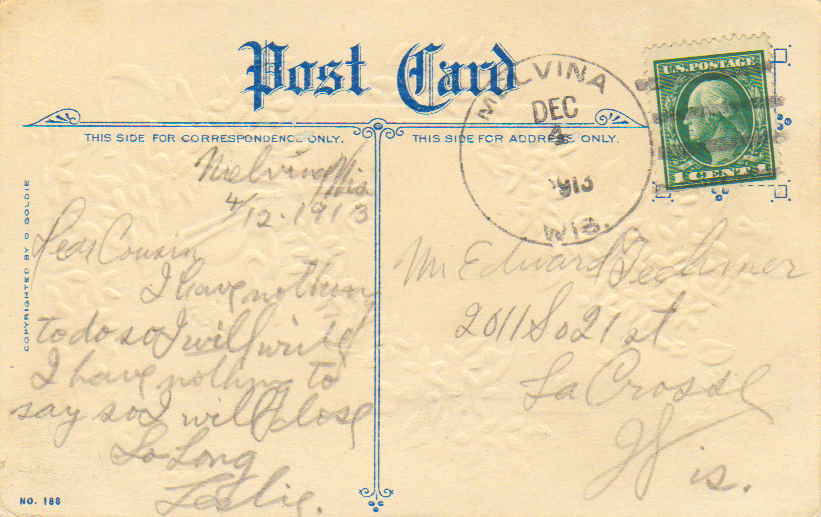 Post Card
THIS SIDE FOR CORRESPONDENCE ONLY.
THIS SIDE FOR ADDRESS ONLY.
MELVINA
DEC
4
1913
WIS.
U.S. POSTAGE
1 CENT 1
COPYRIGHTED BY G GOLDIE
Melvina Wis
4/12-1913
Dear Cousin
I have nothing
to do so I will write
I have nothing to
say so I will close
So Long
Leslie.
Mr Edward
2011 So 21 st
La Crosse
Wis.
NO. 188